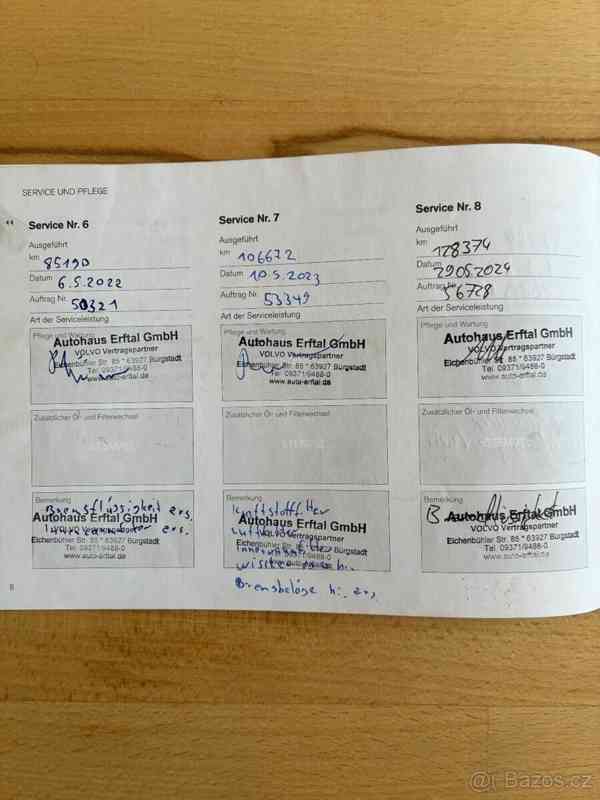 SERVICE UND PFLEGE
Service Nr. 6
Ausgeführt
km 85190
Datum 6.5.2022
Auftrag Nr. 50321
Art der Serviceleistung
Pflege und Wartung
Autohaus Erftal GmbH
VOLVO Vertragspartner
Eichenbühler Str. 85 * 63927 Bürgstadt
Tel. 09371/9488-0
www.auto-erftal.de
Zusätzlicher Öl- und Filterwechsel
Bemerkung
Bremsflüssigkeit ers,
Autohaus Erftal GmbH
VOLVO Vertragspartner
Eichenbühler Str. 85 * 63927 Bürgstadt
Tel. 09371/9488-0
www.auto-erftal.de
Service Nr. 7
Ausgeführt
km 106672
Datum 10.5.2023
Auftrag Nr. 53349
Art der Serviceleistung
Pflege und Wartung
Autohaus Erftal GmbH
VOLVO Vertragspartner
Eichenbühler Str. 85 * 63927 Bürgstadt
Tel. 09371/9488-0
www.auto-erftal.de
Zusätzlicher Öl- und Filterwechsel
Bemerkung
Autohaus Erftal GmbH
VOLVO Vertragspartner
Eichenbühler Str. 85 * 63927 Bürgstadt
Tel. 09371/9488-0
Bremsbeläge hi. ers,
Service Nr. 8
Ausgeführt
km 128374
Datum 29.05.2024
Auftrag Nr. 56728
Art der Serviceleistung
Pflege und Wartung
Autohaus Erftal GmbH
VOLVO Vertragspartner
Eichenbühler Str. 85 * 63927 Bürgstadt
Tel. 09371/9488-0
www.auto-erftal.de
Zusätzlicher Öl- und Filterwechsel
Bemerkung
Autohaus Erftal GmbH
VOLVO Vertragspartner
Eichenbühler Str. 85 * 63927 Bürgstadt
Tel. 09371/9488-0
www.auto-erftal.de
Bazos.cz